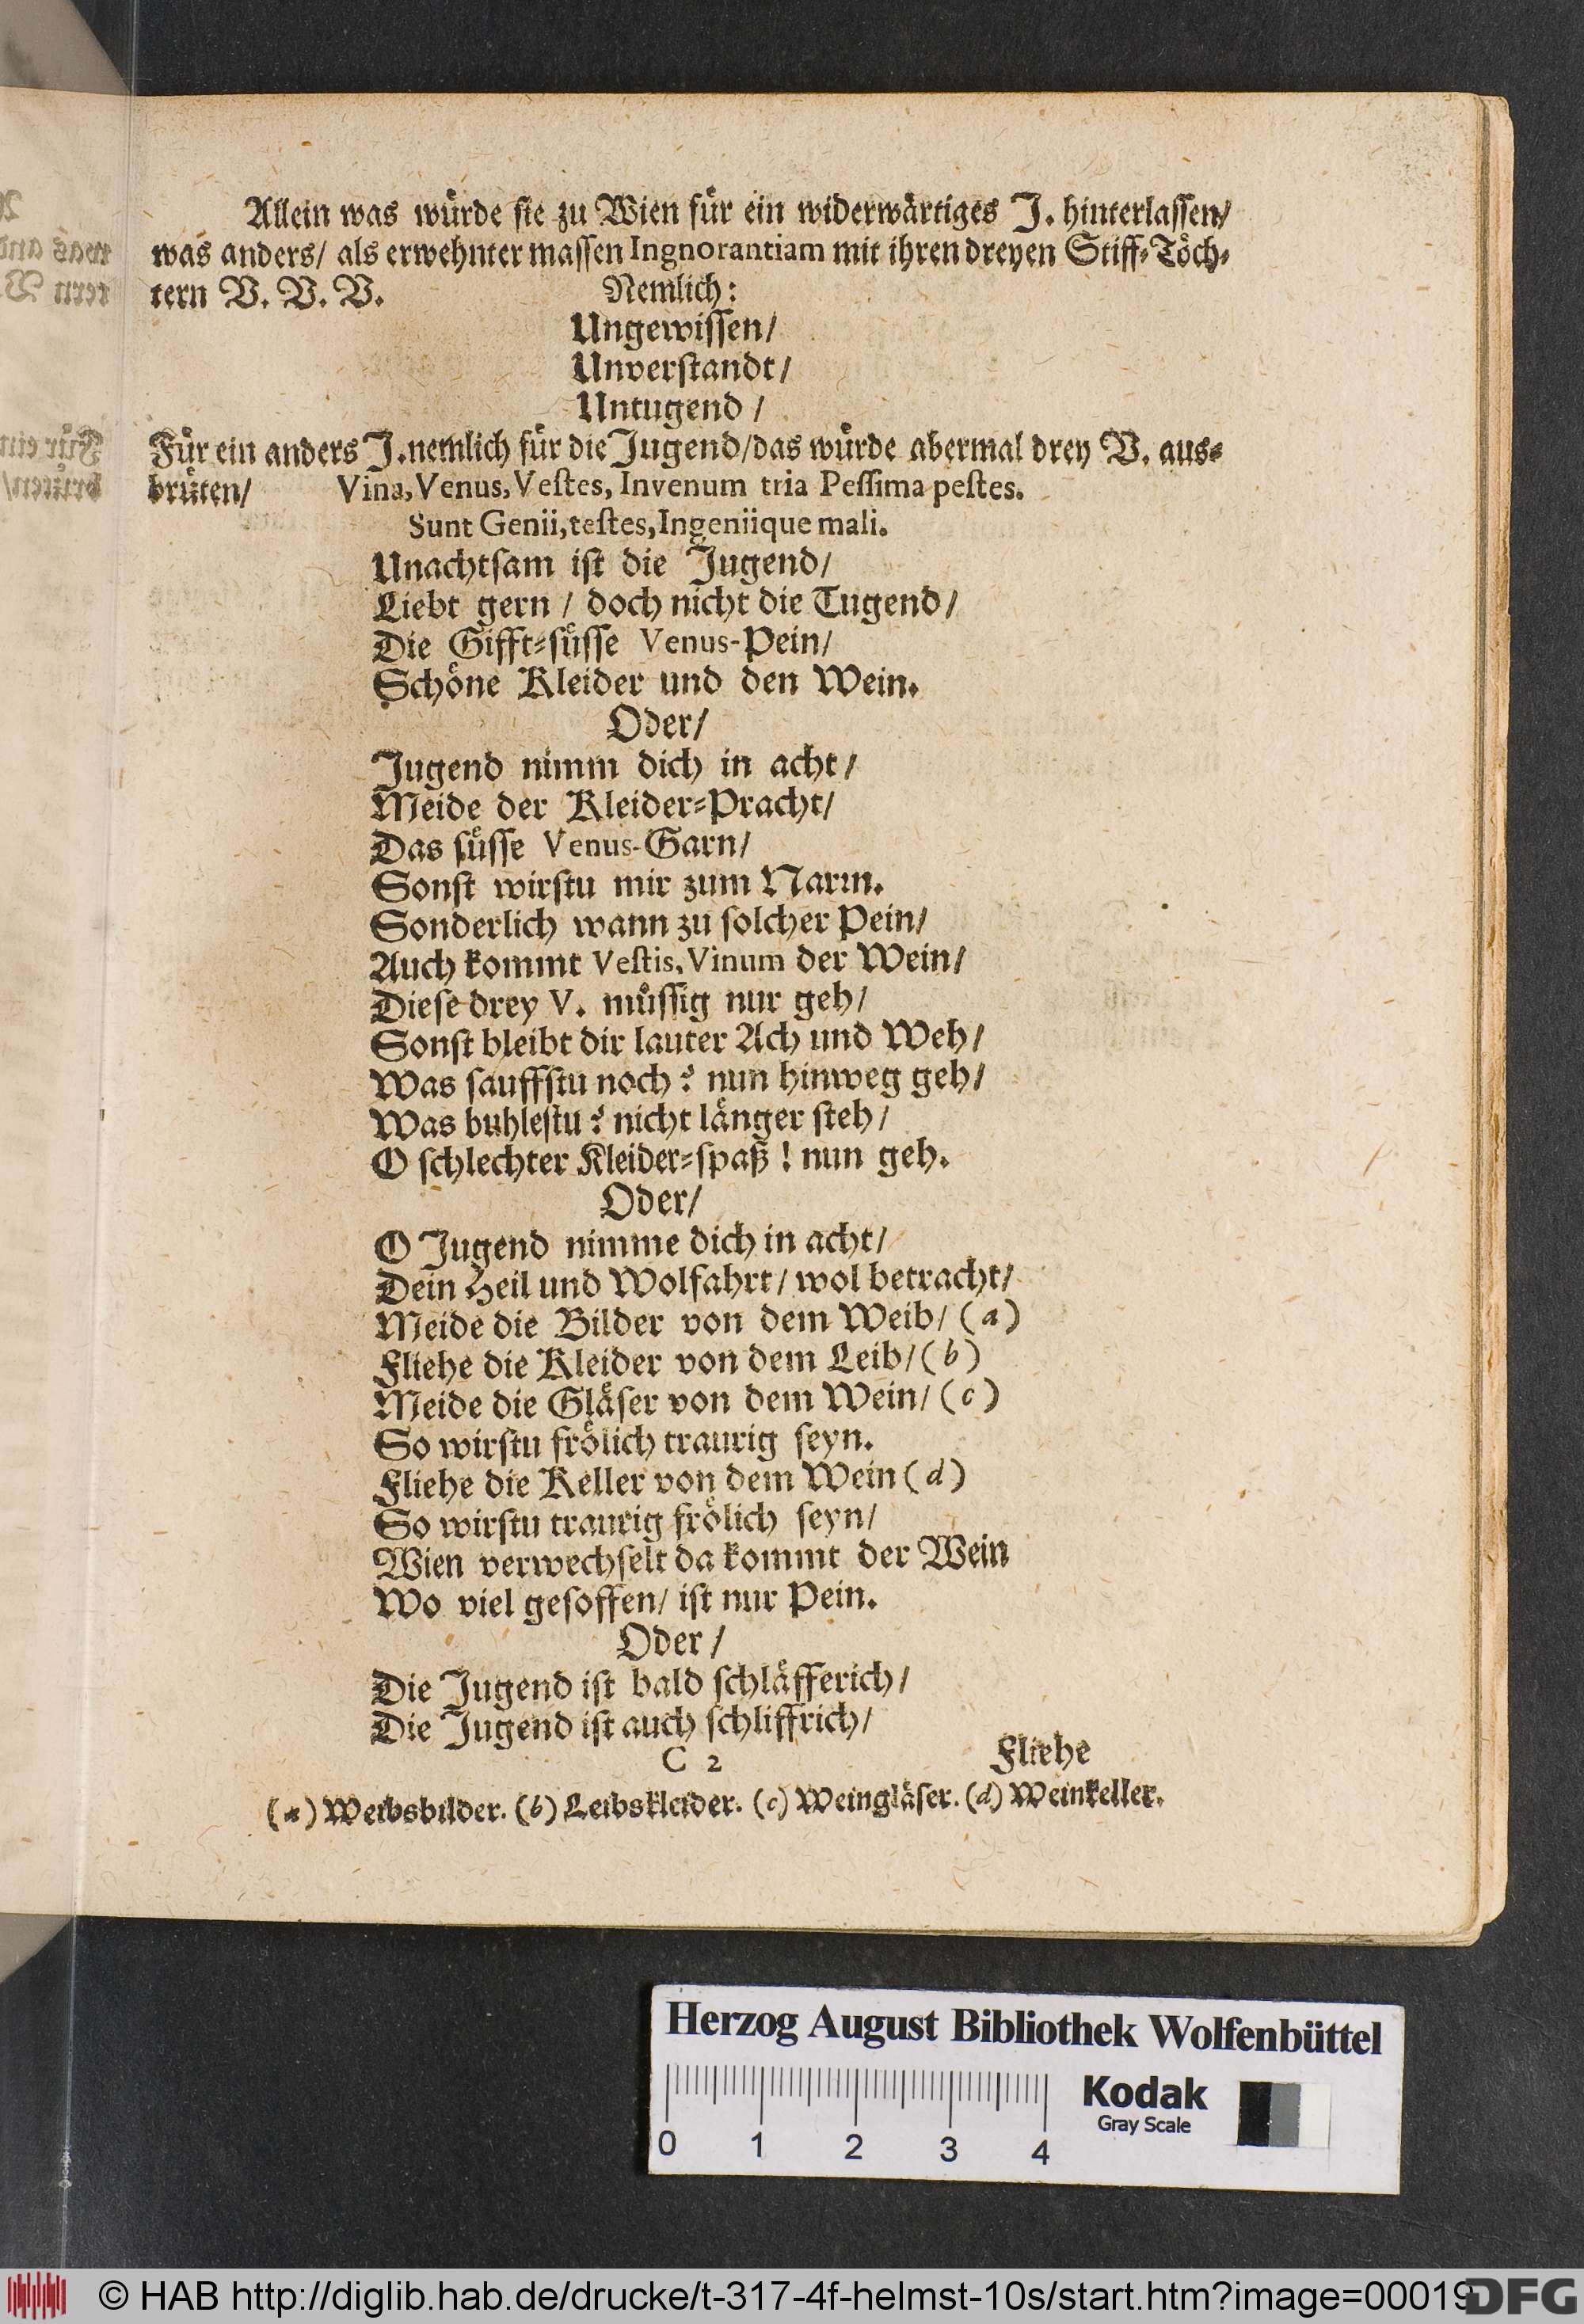 Allein was wuͤrde sie zu Wien fuͤr ein widerwaͤrtiges J. hinterlassen/
was anders/ als erwehnter massen Ingnorantiam mit ihren dreyen Stiff-Toͤch-
tern V. V. V. Nemlich:
Ungewissen/
Unverstandt/
Untugend/
Fuͤr ein anders J. nemlich fuͤr die Jugend/das wuͤrde abermal drey V. aus-
bruͤten/ Vina, Venus, Vestes, Invenum tria Pessima pestes.
Sunt Genii, testes, Ingeniique mali.
Unachtsam ist die Jugend/
Liebt gern / doch nicht die Tugend/
Die Gifft-suͤsse Venus-Pein/
Schoͤne Kleider und den Wein.
Oder/
Jugend nimm dich in acht/
Meide der Kleider-Pracht/
Das suͤsse Venus-Garn/
Sonst wirstu mir zum Narrn.
Sonderlich wann zu solcher Pein/
Auch kommt Vestis, Vinum der Wein/
Diese drey V. muͤssig nur geh/
Sonst bleibt dir lauter Ach und Weh/
Was sauffstu noch? nun hinweg geh/
Was buhlestu? nicht laͤnger steh/
O schlechter Kleider-spaß! nun geh.
Oder/
O Jugend nimme dich in acht/
Dein Heil und Wolfahrt/ wol betracht/
Meide die Bilder von dem Weib/ (a)
Fliehe die Kleider von dem Leib/ (b)
Meide die Glaͤser von dem Wein/ (c)
So wirstu froͤlich traurig seyn.
Fliehe die Keller von dem Wein (d)
So wirstu traurig froͤlich seyn/
Wien verwechselt da kommt der Wein
Wo viel gesoffen/ ist nur Pein.
Oder/
Die Jugend ist bald schlaͤfferich/
Die Jugend ist auch schliffrich/
C 2 Fliehe
(a) Weibsbilder. (b) Leibskleider. (c) Weinglaͤser. (d) Weinkeller.
Herzog August Bibliothek Wolfenbüttel
Kodak
Gray Scale
0 1 2 3 4
© HAB http://diglib.hab.de/drucke/t-317-4f-helmst-10s/start.htm?image=00019
DFG